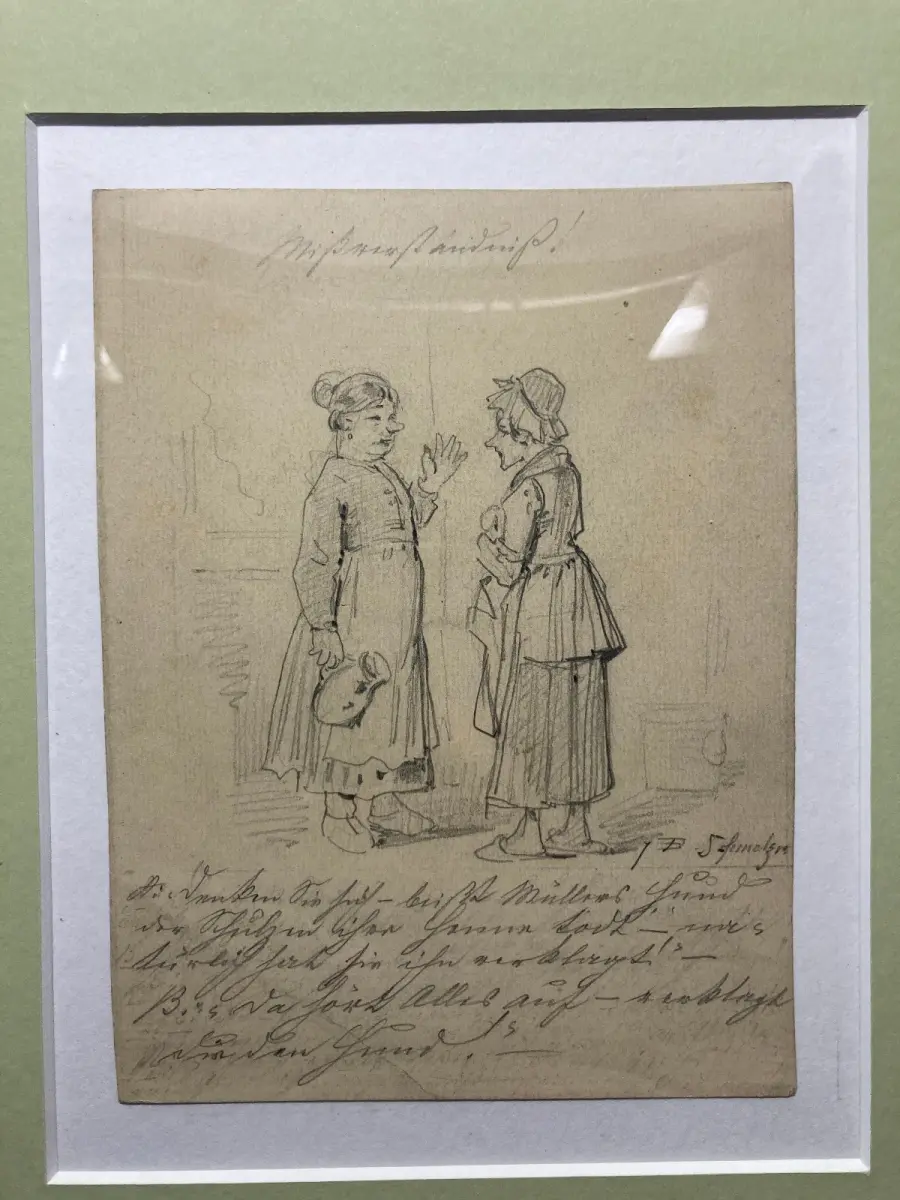 Mißverständniß!
J B Schmelzer
A: „Denken Sie sich – beißt Müllers Hund
der Schulzen ihre Henne todt – na-
türlich hat sie ihn verklagt!“ –
B.: „Da hört Alles auf – verklagt
die den Hund!“ –